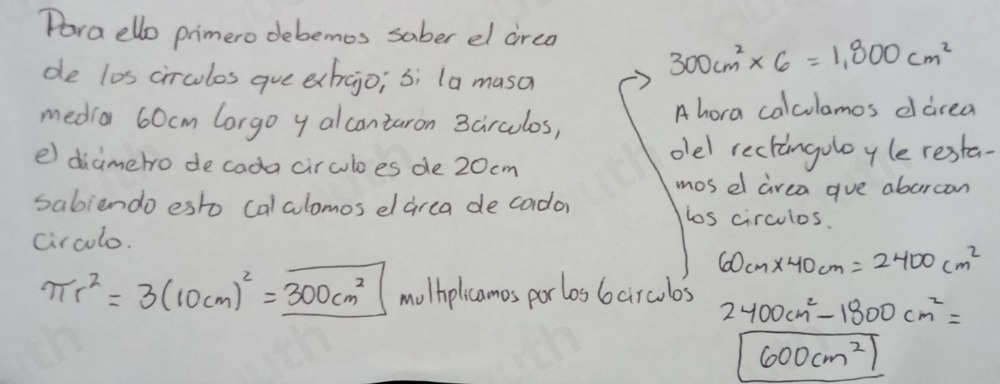 Para ello primero debemos saber el área
de los circulos que extrajo; si la masa
media 60cm largo y alcanzaron 3 circulos,
el diámetro de cada circulo es de 20cm
sabiendo esto calculamos el área de cada
circulo.
πr² = 3(10cm)² = 300cm² multiplicamos por los 6 circulos
300cm² × 6 = 1,800 cm²
Ahora calculamos el área
del rectángulo y le resta-
mos el área que abarcan
los circulos.
60cm × 40cm = 2400 cm²
2400cm² - 1800 cm² =
600cm²